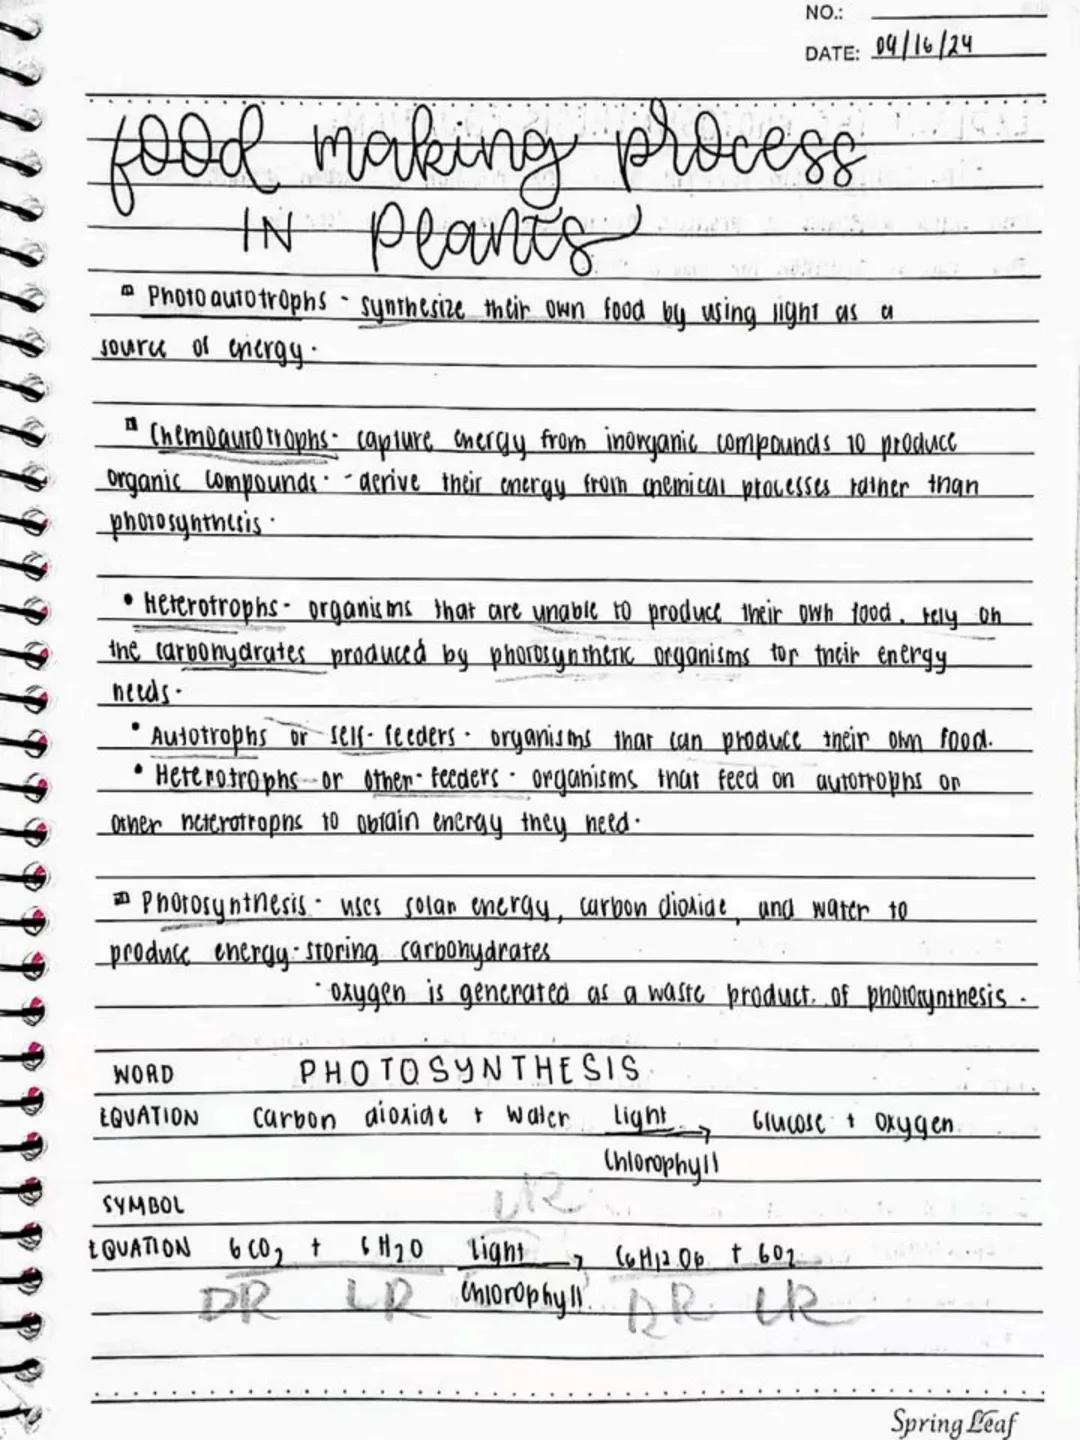 NO.:
DATE: 09/16/24
food making process
IN Plants
Photoautotrophs - synthesize their own food by using light as a
source of energy.
Chemoautotrophs - capture energy from inorganic compounds to produce
organic compounds. - derive their energy from chemical processes rather than
photosynthesis.
• Heterotrophs - organisms that are unable to produce their own food. rely on
the carbohydrates produced by photosynthetic organisms for their energy
needs.
• Autotrophs or self-feeders - organisms that can produce their own food.
• Heterotrophs or other-feeders - organisms that feed on autotrophs or
other heterotrophs to obtain energy they need.
Photosynthesis - uses solar energy, carbon dioxide, and water to
produce energy-storing carbohydrates
- oxygen is generated as a waste product of photosynthesis.
WORD PHOTOSYNTHESIS
EQUATION Carbon dioxide + Water Light → Glucose + Oxygen
Chlorophyll
LR
SYMBOL
EQUATION 6CO2 + 6H2O Light → C6H12O6 + 6O2
DR LR Chlorophyll DR LR
Spring Leaf